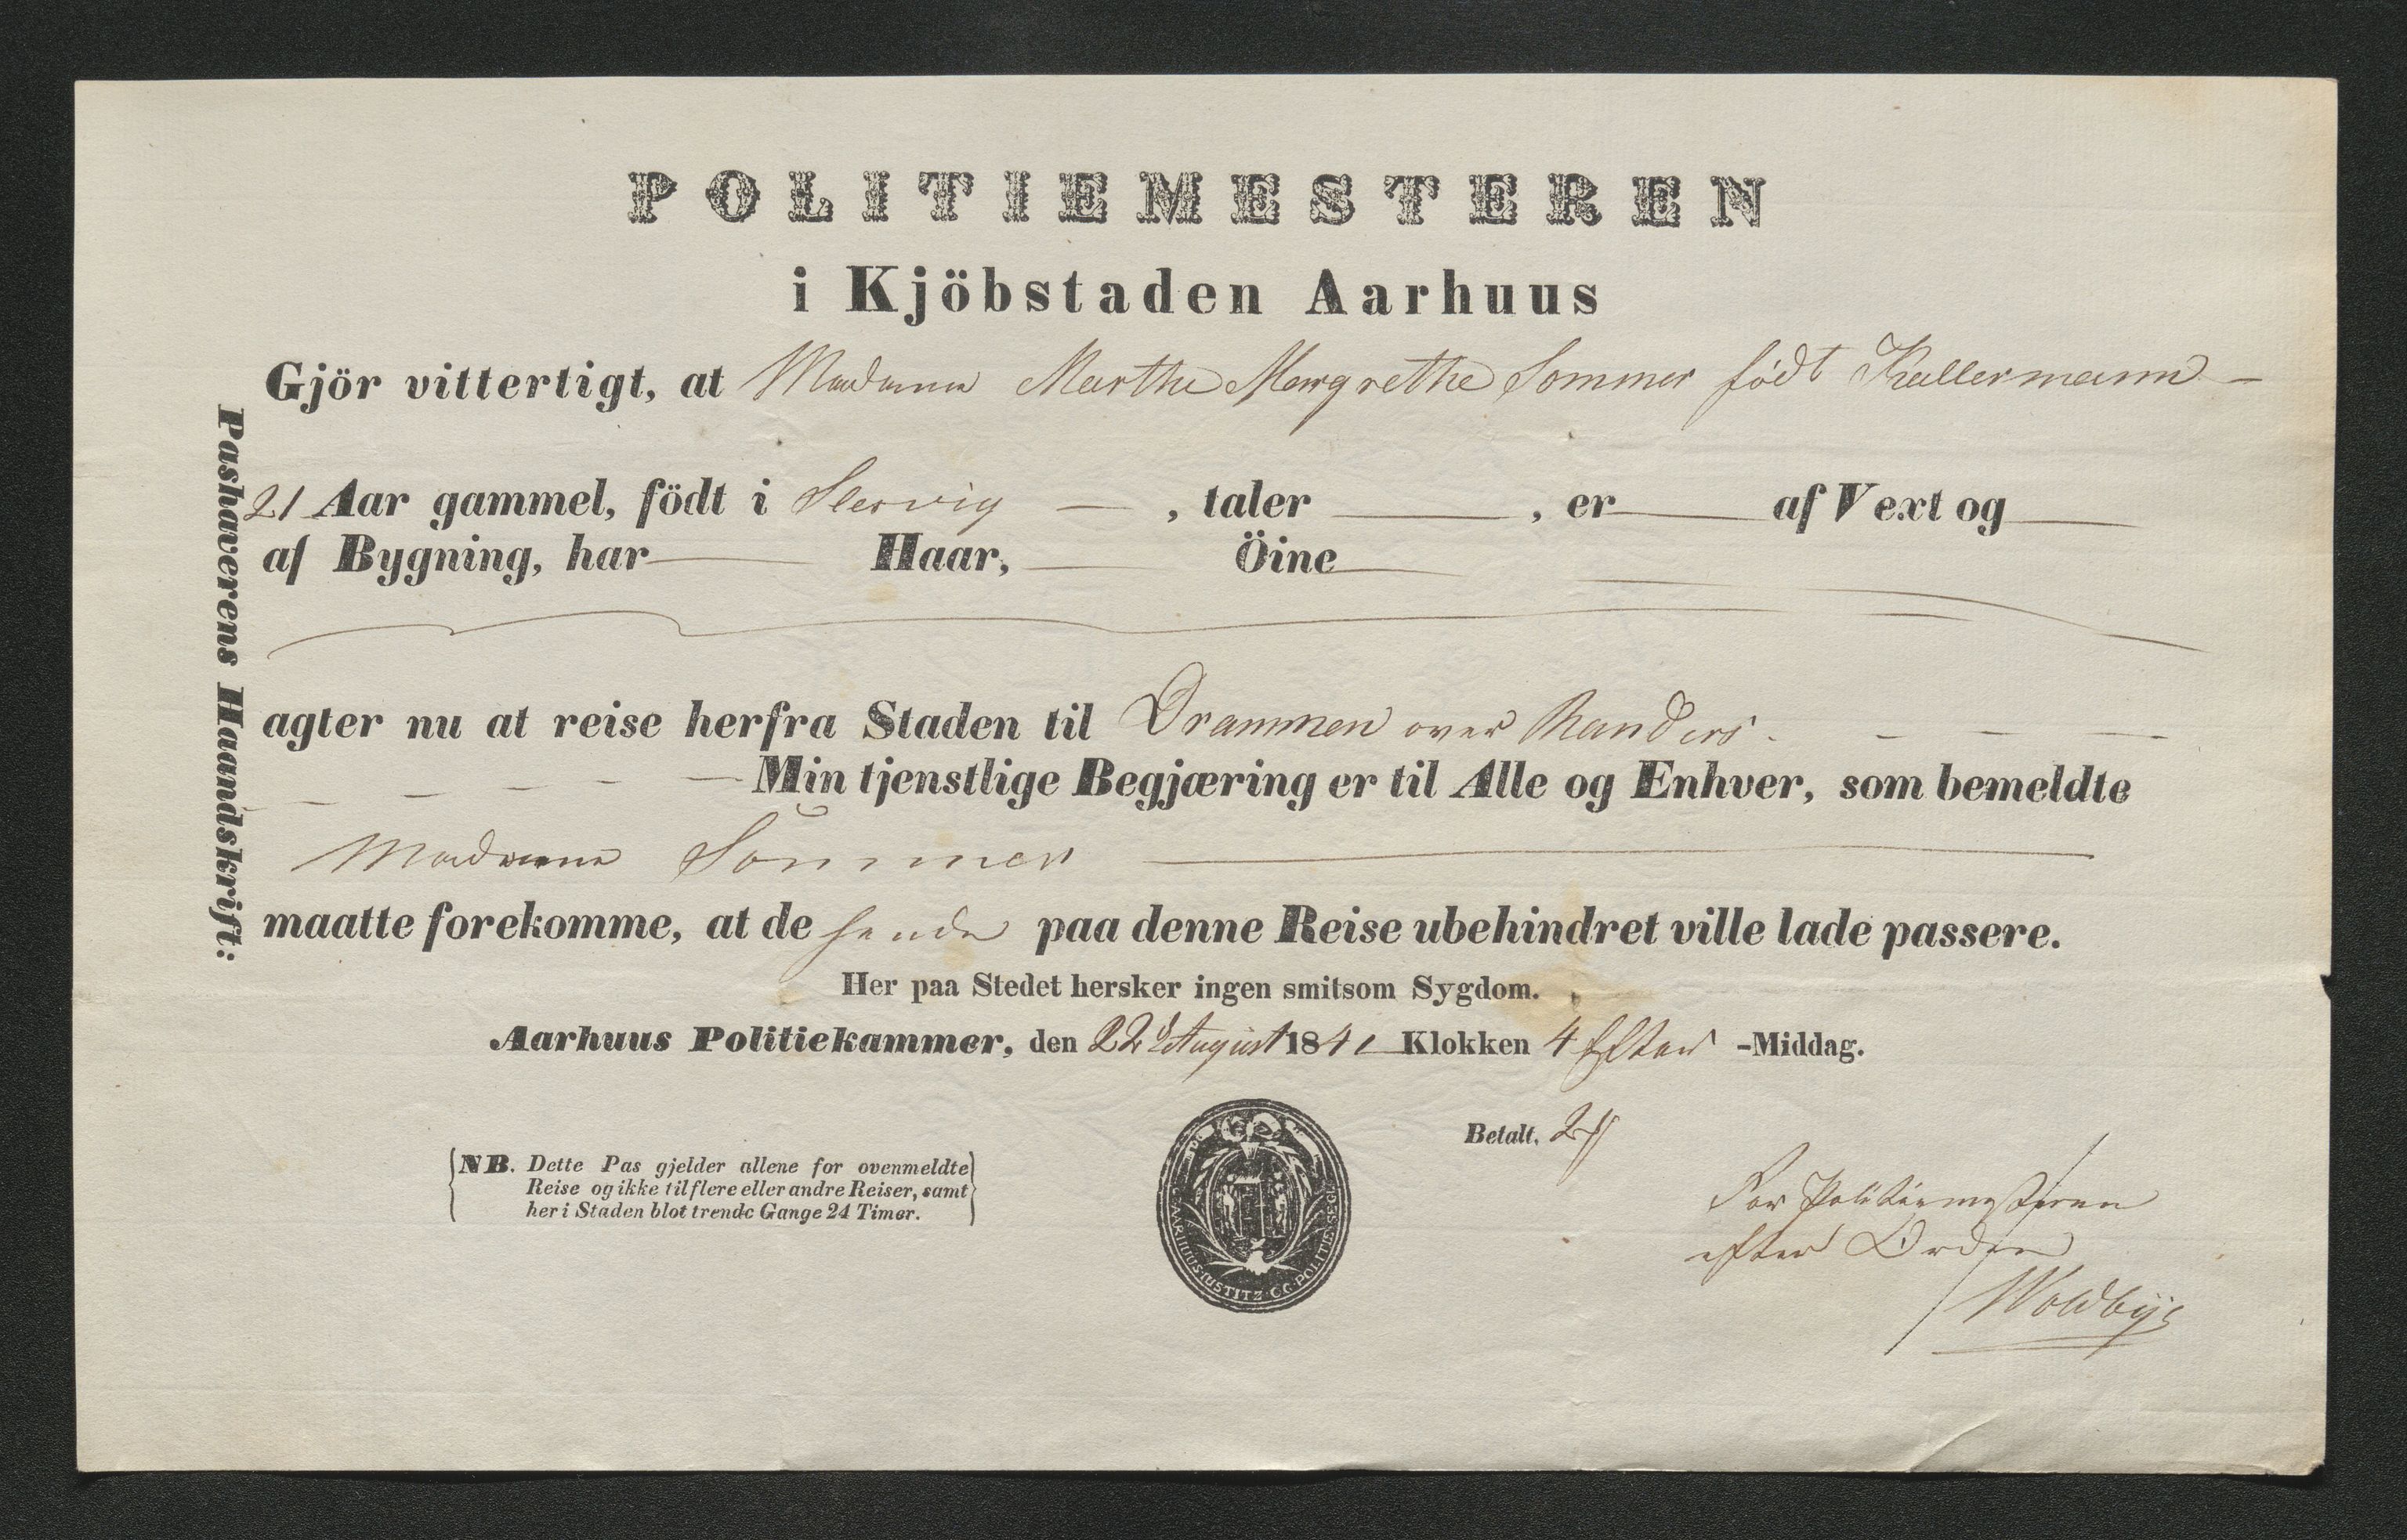 POLITIEMESTEREN
i Kjöbstaden Aarhuus
Gjör vittertigt, at Madame Marthe Margrethe Sommer födt Kallermann
21 Aar gammel, födt i Slesvig — , taler , er af Vext og
af Bygning, har Haar, Öine
agter nu at reise herfra Staden til Drammen over Randers.
Min tjenstlige Begjæring er til Alle og Enhver, som bemeldte
Madame Sommer
maatte forekomme, at de hende paa denne Reise ubehindret ville lade passere.
Her paa Stedet hersker ingen smitsom Sygdom.
Aarhuus Politiekammer, den 22d August 1841 Klokken 4 Efter -Middag.
Betalt, 24
NB. Dette Pas gjelder allene for ovenmeldte
Reise og ikke til flere eller andre Reiser, samt
her i Staden blot trende Gange 24 Timer.
AARHUUS IUSTITZ OG POLITIE SEGL
For Politiemesteren
efter Ordre
Woldbye
Pashaverens Haandskrift: